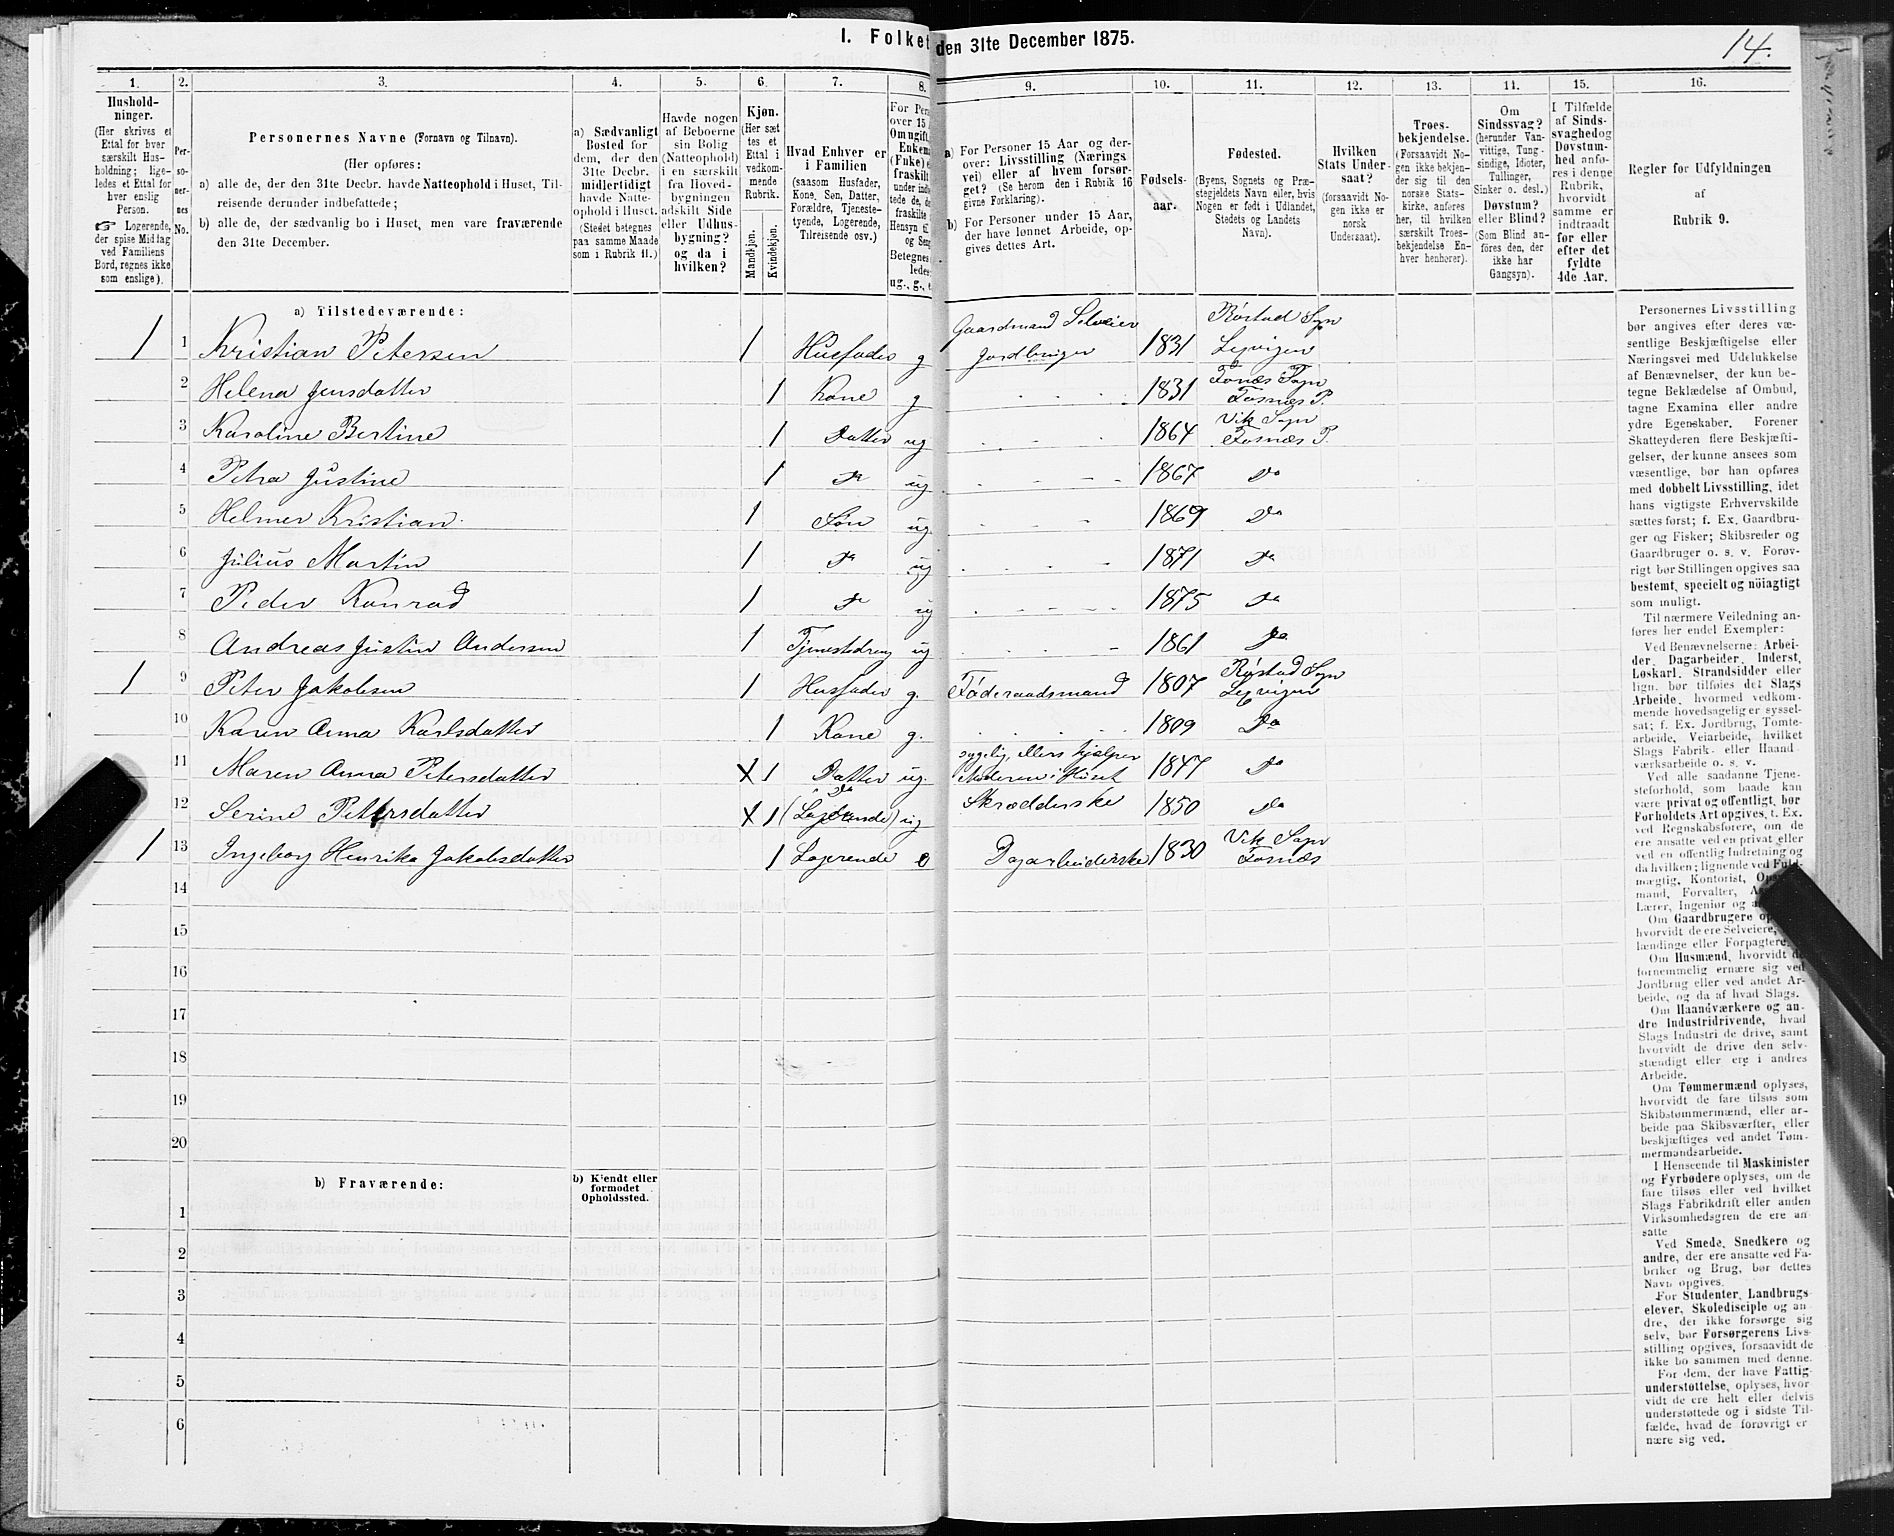 I. Folket den 31te December 1875.
14.
1. 2. 3. 4. 5. 6. 7. 8. 9. 10. 11. 12. 13. 14. 15. 16.
Hushold-
ninger.
(Her skrives et
Ettal for hver
særskilt Hus-
holdning; lige-
ledes et Ettal for
hver enslig
Person.
☞ Logerende,
der spise Middag
ved Familiens
Bord, regnes ikke
som enslige).
Per-
so-
ner-
nes
No.
Personernes Navne (Fornavn og Tilnavn).
(Her opføres:
a) alle de, der den 31te Decbr. havde Natteophold i Huset, Til-
reisende derunder indbefattede;
b) alle de, der sædvanlig bo i Huset, men vare fraværende
den 31te December.
a) Sædvanligt
Bosted for
dem, der den
31te Decbr.
midlertidigt
havde Natte-
ophold i Huset.
(Stedet betegnes
paa samme Maade
som i Rubrik 11.)
Havde nogen
af Beboerne
sin Bolig
(Natteophold)
i en særskilt
fra Hoved-
bygningen
adskilt Side
eller Udhus-
bygning?
og da i
hvilken?
Kjøn.
(Her sæt
tes et
Ettal i
vedkom-
mende
Rubrik.
Mandkjøn.
Kvindekjøn.
Hvad Enhver er
i Familien
(saasom Husfader,
Kone, Søn, Datter,
Forældre, Tjeneste-
tyende, Logerende,
Tilreisende osv.)
For Per
over 15
Om ugift,
Enkem
(Fuke) e
fraskilt
under ind
tede de, d
fraskilte
Hensyn til
og Seng
Betegnes
ledes
ug., g., e
a) For Personer 15 Aar og der-
over: Livsstilling (Nærings
vei) eller af hvem forsør-
get? (Se herom den i Rubrik 16
givne Forklaring).
b) For Personer under 15 Aar,
der have lønnet Arbeide, op-
gives dettes Art.
Fødsels-
aar.
Fødested.
(Byens, Sognets og Præ-
stegjeldets Navn eller, hvis
Nogen er født i Udlandet,
Stedets og Landets
Navn).
Hvilken
Stats Under-
saat?
(forsaavidt No-
gen ikke er
norsk
Undersaat).
Troes-
bekjendelse.
(Forsaavidt No-
gen ikke bekjen-
der sig til den
norske Stats-
kirke, anføres
her, til hvilken
særskilt Troes-
bekjendelse En-
hver henhører).
Om
Sindssvag?
(herunder Van-
vittige, Tung-
sindige, Idioter,
Tullinger,
Sinker o. desl.)
Døvstum?
eller Blind?
(Som Blind an-
føres den, der
ikke har
Gangsyn).
I Tilfælde
af Sinds-
svaghedog
Døvstum-
hed anfø-
res i denne
Rubrik,
hvorvidt
samme er
indtraadt
før eller
efter det
fyldte
4de Aar.
Regler for Udfyldningen
af
Rubrik 9.
a) Tilstedeværende:
1 1 Kristian Petersen 1 Husfader g Gaardmand Selveier Jordbruger 1831 Røstad Sogn Lexvigen
2 Helena Jensdatter 1 Kone g 1831 Fosnæs Sogn Fosnæs P.
3 Karoline Bertine 1 Datter ug 1864 Vik Sogn Fosnæs P.
4 Petra Justine 1 Do ug 1867 Do
5 Helmer Kristian 1 Søn ug 1869 Do
6 Julius Martin 1 Do ug 1871 Do
7 Peder Konrad 1 Do ug 1875 Do
8 Andreas Justin Andersen 1 Tjenestedreng ug 1861 Do
1 9 Peter Jakobsen 1 Husfader g. Føderaadsmand 1807 Røstad Sogn Lexvigen
10 Karen Anna Karlsdatter 1 Kone g. 1809 Do
11 Maren Anna Petersdatter X 1 Datter ug. sygelig, ellers hjælper Moderen i Huset 1847 Do
12 Serine Petersdatter X 1 Do (Logerende) ug Skrædderske 1850 Do
1 13 Ingeborg Henrika Jakobsdatter 1 Logerende e Dagarbeiderske 1830 Vik Sogn Fosnæs
14
15
16
17
18
19
20
b) Fraværende:
b) Kjendt eller
formodet
Opholdssted.
1
2
3
4
5
6
Personernes Livsstilling
bør angives efter deres væ-
sentlige Beskjæftigelse eller
Næringsvei med Udelukkelse
af Benævnelser, der kun be-
tegne Beklædelse af Ombud,
tagne Examina eller andre
ydre Egenskaber. Forener
Skatteyderen flere Beskjæfti-
gelser, der kunne ansees som
væsentlige, bør han opføres
med dobbelt Livsstilling, idet
hans vigtigste Erhvervskilde
sættes først; f. Ex. Gaardbru-
ger og Fisker; Skibsreder og
Gaardbruger o. s. v. Forøv-
rigt bør Stillingen opgives saa
bestemt, specielt og nøiagtigt
som muligt.
Til nærmere Veiledning an-
føres her endel Exempler:
Ved Benævnelserne: Arbei-
der, Dagarbeider, Inderst,
Løskarl, Strandsidder eller
lign. bør tilføies det Slags
Arbeide, hvormed vedkom-
mende hovedsagelig er syssel-
sat; f. Ex. Jordbrug, Tomte-
arbeide, Veiarbeide, hvilket
Slags Fabrik- eller Haand-
værksarbeide o. s. v.
Ved alle saadanne Tjene-
steforhold, som baade kan
være privat og offentligt, bør
Forholdets Art opgives, t. Ex.
ved Regnskabsførere, om de
ere ansatte ved en privat eller
ved en offentlig Indretning og
da hvilken; lignende ved Fuld-
mægtig, Kontorist, Op
mand, Forvalter, As
Lærer, Ingeniør og
Om Gaardbrugere op
hvorvidt de ere Selveiere,
lændinge eller Forpagtere.
Om Husmænd, hvorvidt de
fornemmelig ernære sig ved
Jordbrug eller ved andet Ar-
beide, og da af hvad Slags.
Om Haandværkere og an-
dre Industridrivende, hvad
Slags Industri de drive, samt
hvorvidt de drive den selv-
stændigt eller ere i andres
Arbeide.
Om Tømmermænd oplyses,
hvorvidt de fare tilsøs som
Skibstømmermænd, eller ar-
beide paa Skibsværfter, eller
beskjæftiges ved andet Tøm-
mermandsarbeide.
I Henseende til Maskinister
og Fyrbødere oplyses, om de
fare tilsøs eller ved hvilket
Slags Fabrikdrift eller anden
Virksomhedsgren de ere an-
satte
Ved Smede, Snedkere og
andre, der ere ansatte ved Fa-
briker og Brug, bør dettes
Navn opgives.
For Studenter, Landbrugs-
elever, Skoledisciple og an-
dre, der ikke forsørge sig
selv, bør Forsørgerens Livs-
stilling opgives, forsaavidt de
ikke bo sammen med denne.
For dem, der have Fattig-
understøttelse, oplyses, hvor
vidt de ere helt eller delvis
understøttede og i sidste Til-
fælde, hvad de forøvrigt er
nære sig ved.